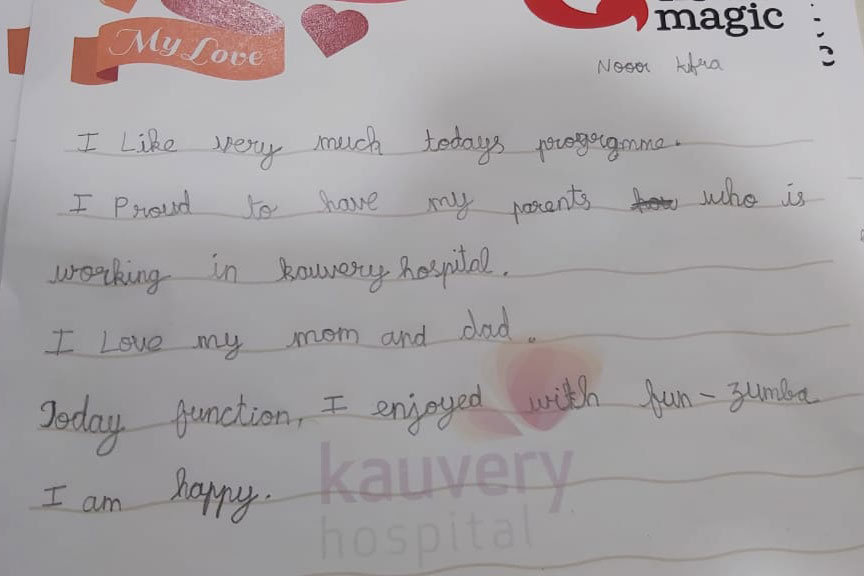 My Love
magic
Nooor
I Like very much todays progrgmme.
I Proud to have my parents who is
working in kauvery hospital.
I Love my mom and dad.
Today function, I enjoyed with fun - zumba
I am happy.
kauvery
hospital